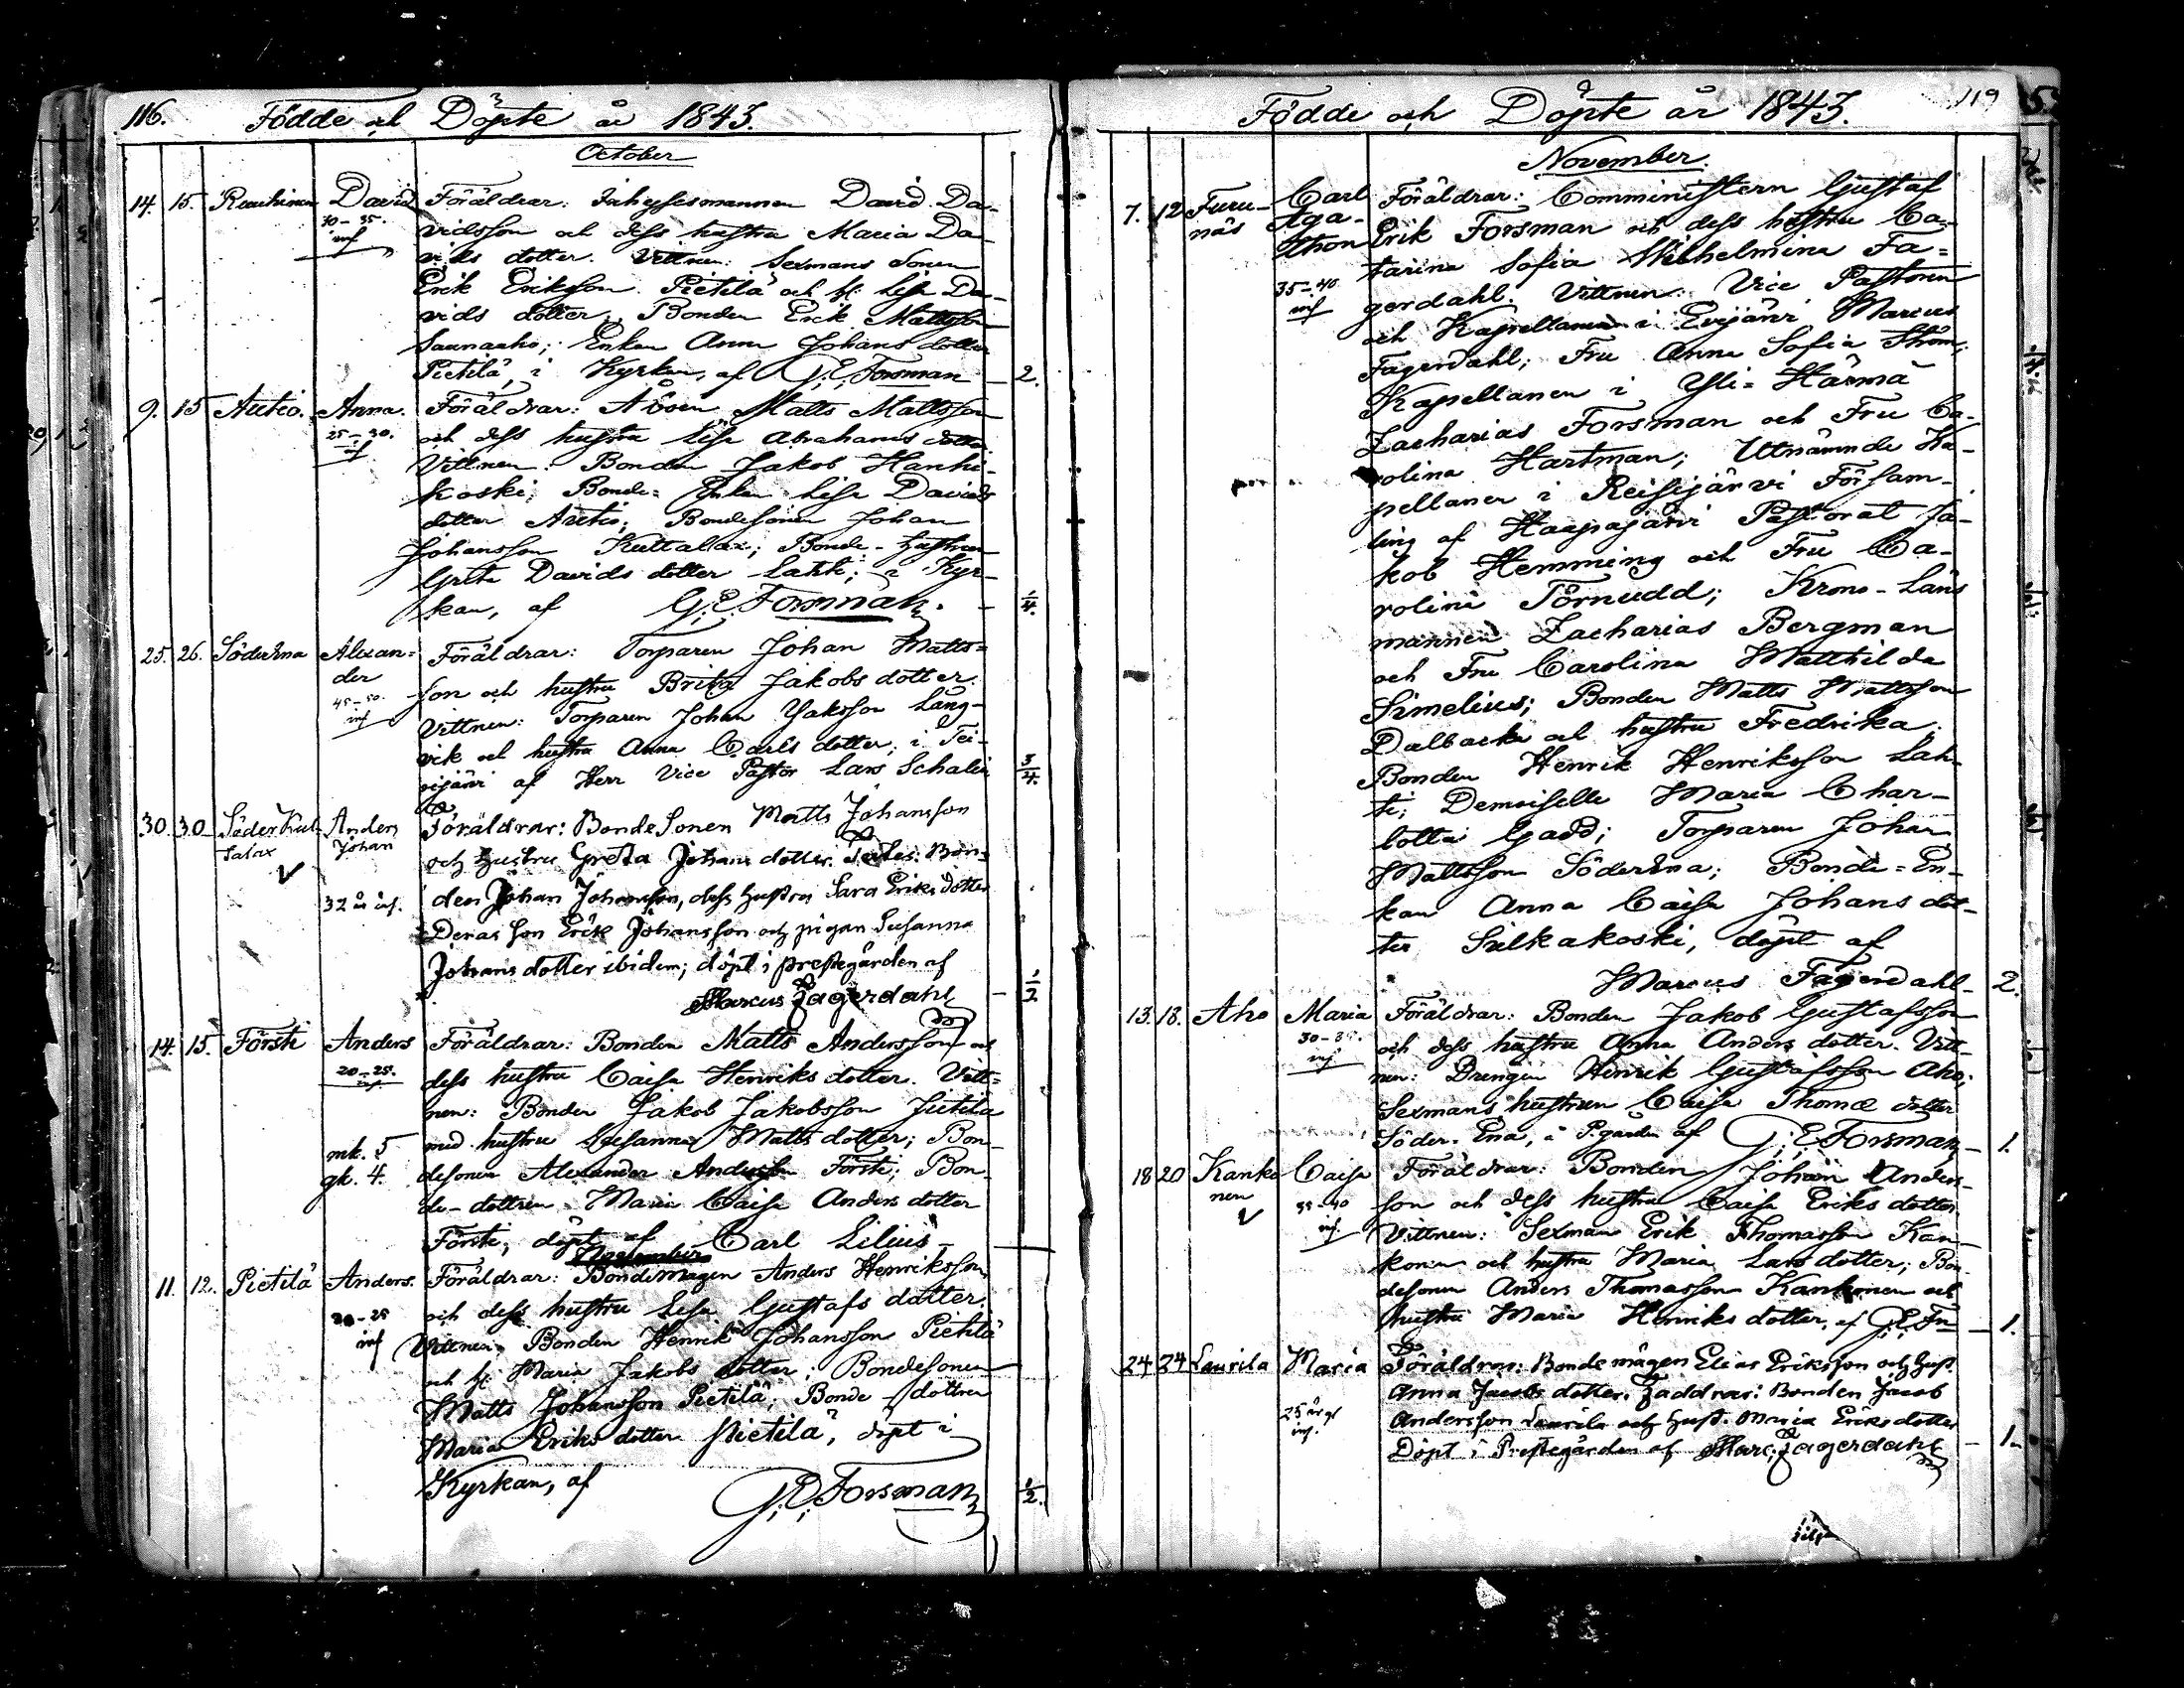 116. Födde och Döpte år 1843.
October
14. 15. David Föräldrar: David Da-
30-35. inf vidsson och dess hustru Maria Da-
vids dotter. Vittnen: Sexmans Sonen
Erik Eriksson Pietilä och h: Lisa Da-
vids dotter; Bonden Erik Mattsson
Saunaaho; Enkan Anna Johans dotter
Pietilä, i Kyrkan, af G: E: Forsman — 2.
9. 15 Autio. Anna. Föräldrar: Matts Mattsson
25-30. inf och dess hustru Lisa Abrahams dotter
Vittnen: Bonden Jakob Hanhi-
koski; Bonde-Enkan Lisa Davids
dotter Autio; Bondesonen Johan
Johansson Kuttalax; Bonde-hustrun
Greta Davids dotter i Kyr-
kan, af G: E Forsman. — 1/4.
25. 26. SöderEna Alexan- Föräldrar: Torparen Johan Matts-
der son och hustru Brita Jakobs dotter.
45-50. inf Vittnen: Torparen Johan Lång-
vik och hustru Anna Carls dotter; i
af Herr Vice Pastor Lars Schalin 3/4.
30. 30 Söder Kut- Anders Föräldrar: BondeSonen Matts Johansson
talax Johan och hustru Greta Johans dotter. Bon-
32 år inf. den Johan Johansson, dess hustru Sara Eriks dotter
Deras son Erik Johansson och pigan Susanna
Johans dotter ibidem; döpt i prestegården af
Marcus Fagerdahl — 1/2
14. 15. Försti Anders Föräldrar: Bonden Matts Andersson och
20-25. inf dess hustru Caisa Henriks dotter. Vitt-
nen: Bonden Jakob Jakobsson Jutila
mk. 5 med hustru Susanna Matts dotter; Bon-
gk. 4. desonen Alexander Andersson Försti; Bon-
de-dottren Maria Caisa Anders dotter
Försti, döpt af Carl Lilius —
November
11. 12. Pietilä Anders. Föräldrar: Bondemågen Anders Henriksson
20-25 och dess hustru Lisa Gustafs dotter.
inf Vittnen: Bonden Henrik Johansson Pietilä
och h: Maria Jakobs dotter; Bondesonen
Matts Johansson Pietilä; Bonde-dottren
Maria Eriks dotter Pietilä, döpt i
Kyrkan, af G: E: Forsman 1/2.
Födde och Döpte år 1843. 119
November.
7. 12 Furu- Carl Föräldrar: Comministern Gustaf
näs Aga- Erik Forsman och dess hustru Ca-
thon tarina Sofia Wilhelmina Fa-
35-40 inf gerdahl. Vittnen: Vice Pastoren
och Kapellanen i Evijärvi Marcus
Fagerdahl; Fru Anna Sofia Ström;
Kapellanen i Yli-Härmä
Zacharias Forsman och Fru Ca-
rolina Hartman; Utnämnde Ka-
pellanen i Reisijärvi Försam-
ling af Haapajärvi Pastorat Ja-
kob Hemming och Fru Ca-
rolina Törnudd; Krono-Läns
mannen Zacharias Bergman
och Fru Carolina Matthilda
Simelius; Bonden Matts Mattsson
Dalbacka och hustru Fredrika
Bonden Henrik Henriksson Lah-
ti; Demoiselle Maria Char-
lotta Gadd; Torparen Johan
Mattsson SöderEna; Bonde-En-
kan Anna Caisa Johans dot-
ter Silkakoski, döpt af
Marcus Fagerdahl — 2.
13. 18. Aho Maria Föräldrar: Bonden Jakob Gustafsson
30-35. inf och dess hustru Anna Anders dotter. Vitt-
nen: Drengen Henrik Gustafsson Aho;
Sexmans hustrun Caisa Thomæ dotter
Söder-Ena, i P.gården af G: E Forsman — 1.
18 20 Kanko- Caisa Föräldrar: Bonden Johan Anders-
nen son och dess hustru Caisa Eriks dotter
35-40 inf Vittnen: Sexman Erik Thomasson Kan-
konen och hustru Maria Lars dotter; Bon-
desonen Anders Thomasson Kankonen och
hustru Maria Henriks dotter, af G: E: Fn — 1.
24 24 Laurila Maria Föräldrar: Bonde mågen Elias Eriksson och hust.
Anna Jacobs dotter. Faddrar: Bonden Jacob
25 år inf. Andersson Laurila och hust. Maria Eriks dotter
Döpt i Prestegården af Marc: Fagerdahl — 1